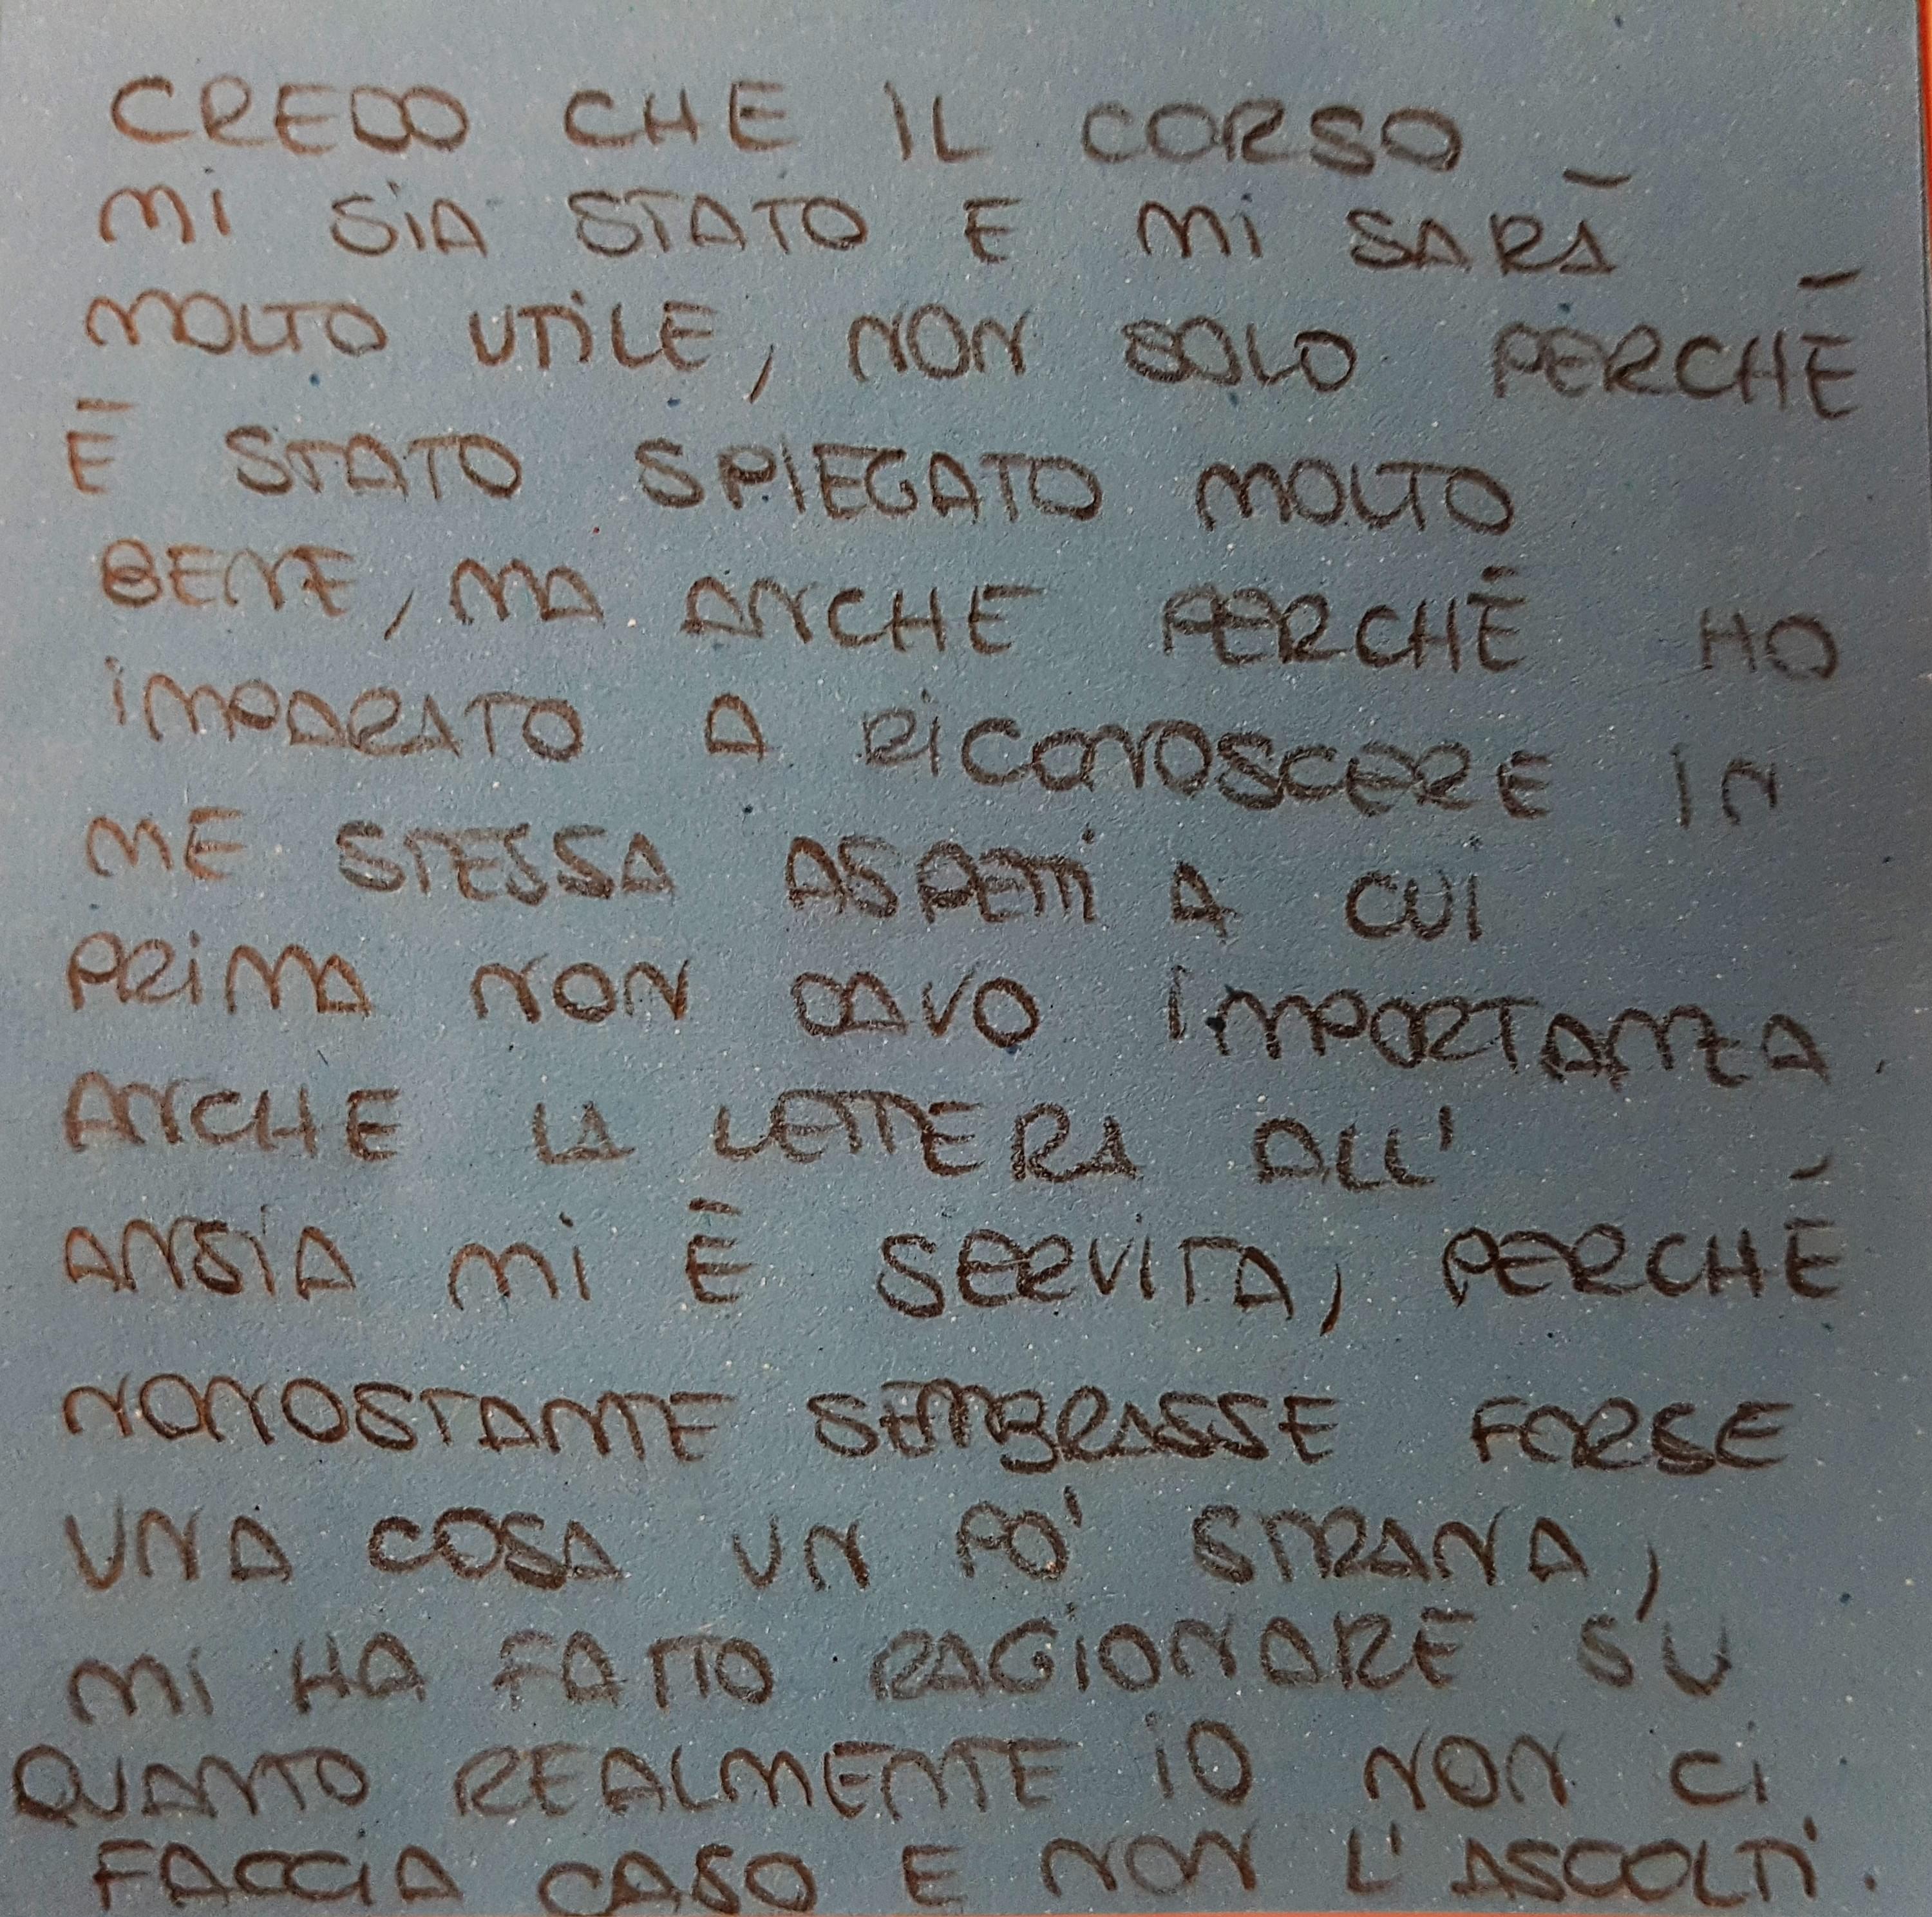 CREDO CHE IL CORSO
MI SIA STATO E MI SARÀ
MOLTO UTILE, NON SOLO PERCHÉ
È STATO SPIEGATO MOLTO
BENE, MA ANCHE PERCHÉ HO
IMPARATO A RICONOSCERE IN
ME STESSA ASPETTI A CUI
PRIMA NON DAVO IMPORTANZA.
ANCHE LA LETTERA ALL'
ANSIA MI È SERVITA, PERCHÉ
NONOSTANTE SEMBRASSE FORSE
UNA COSA UN PO' STRANA,
MI HA FATTO RAGIONARE SU
QUANTO REALMENTE IO NON CI
FACCIA CASO E NON L'ASCOLTI.